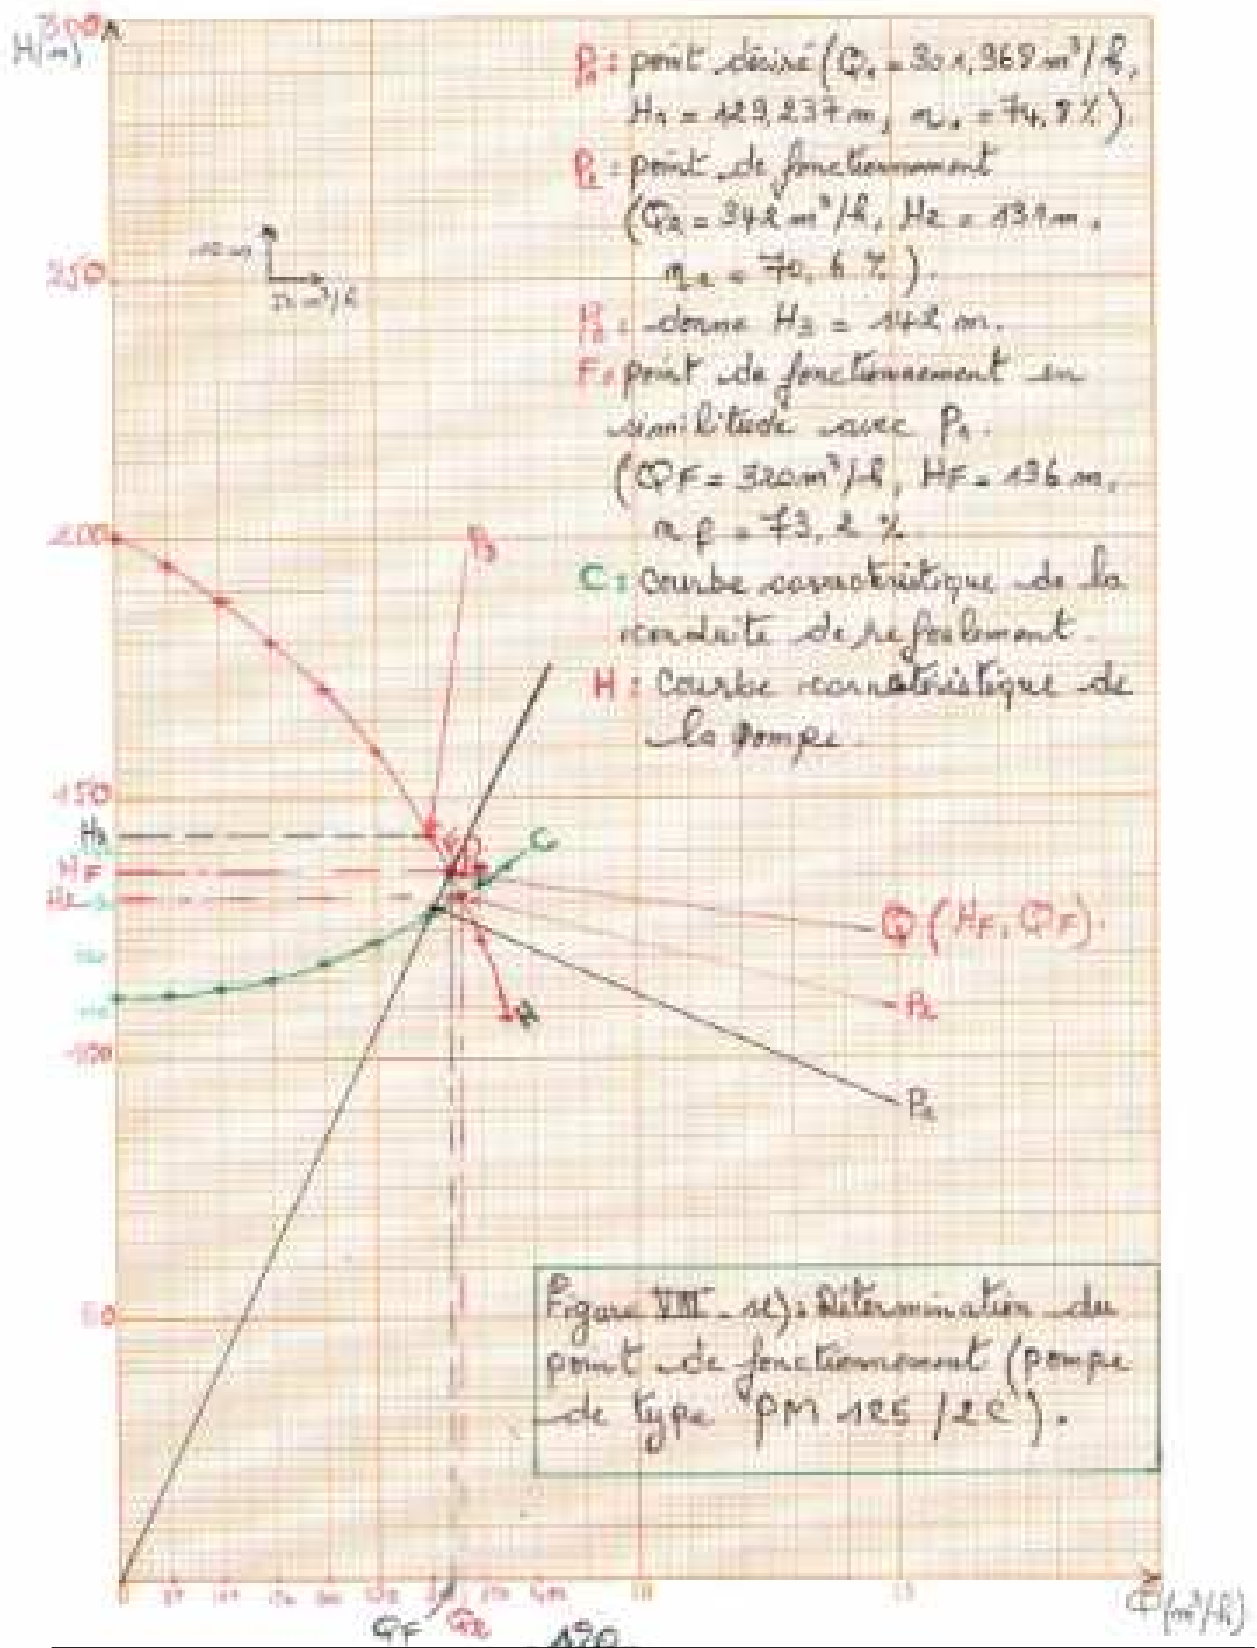 300
H(m)
P1: point désiré (Q1 = 301,968 m³/h,
H1 = 129,237 m, η1 = 74,8 %).
P2: point de fonctionnement
(Q2 = 342 m³/h, H2 = 131 m,
η2 = 70,6 %).
P3: donne H3 = 142 m.
F: point de fonctionnement en
similitude avec P1.
(QF = 320 m³/h, HF = 136 m,
ηF = 73,2 %.
C: Courbe caractéristique de la
conduite de refoulement.
H: Courbe caractéristique de
la pompe.
10 m
250
50 m³/h
200
P3
150
H3
C
HF
H2
Q (HF, QF).
P2
H
100
P1
50
Figure VIII-): Détermination du
point de fonctionnement (pompe
de type "PM 125 /2C").
0
QF Q2
Q(m³/h)